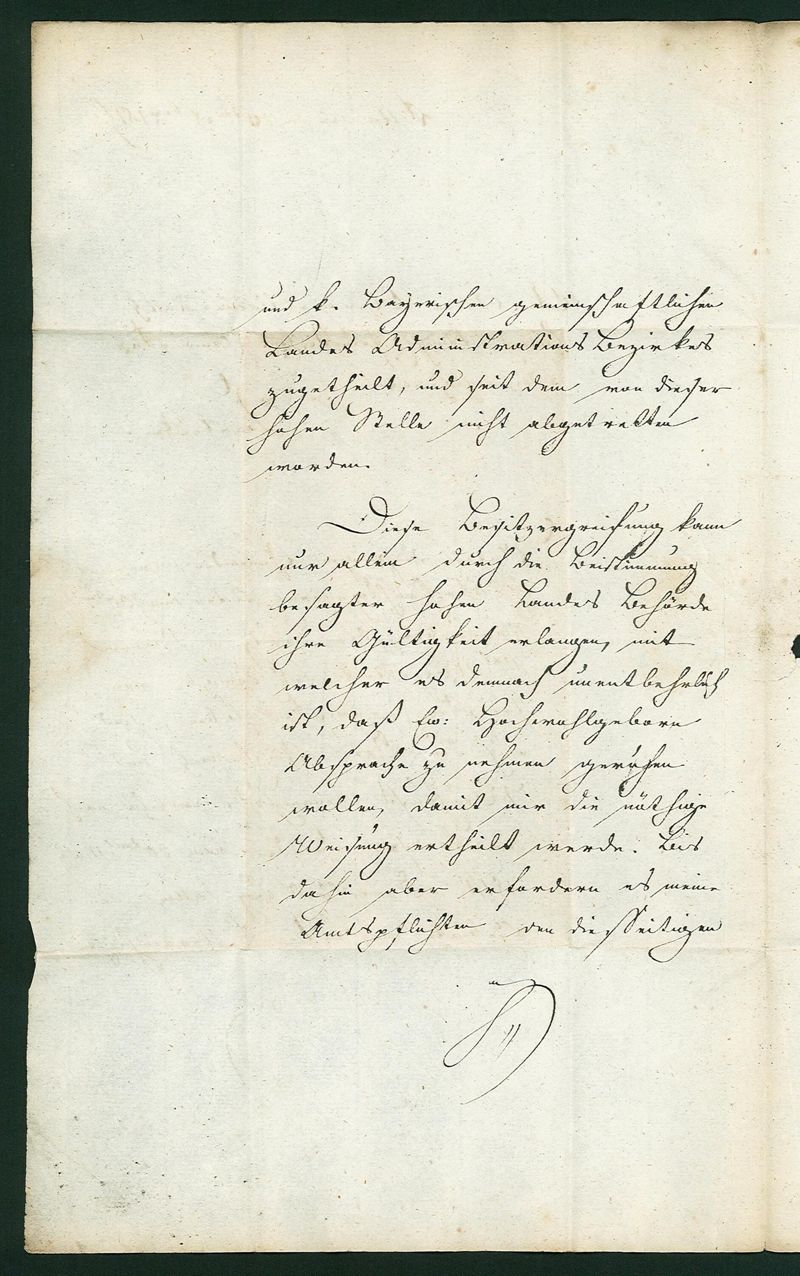 und k. Bayerischen gemeinschaftlichen
Landes Administrations Bezirkes
zugetheilt, und seit dem von dieser
hohen Stelle nicht abgetretten
worden.
Diese Besitzergreifung kann
nur allein durch die Beistimmung
besagter hohen Landes Behörde
ihre Gültigkeit erlangen, mit
welcher es demnach unentbehrlich
ist, daß Ew: Hochwohlgeborn
Absprache zu nehmen geruhen
wollen, damit mir die nöthige
Weisung ertheilt werde. Bis
dahin aber erfordern es meine
Amtspflichten den diesseitigen